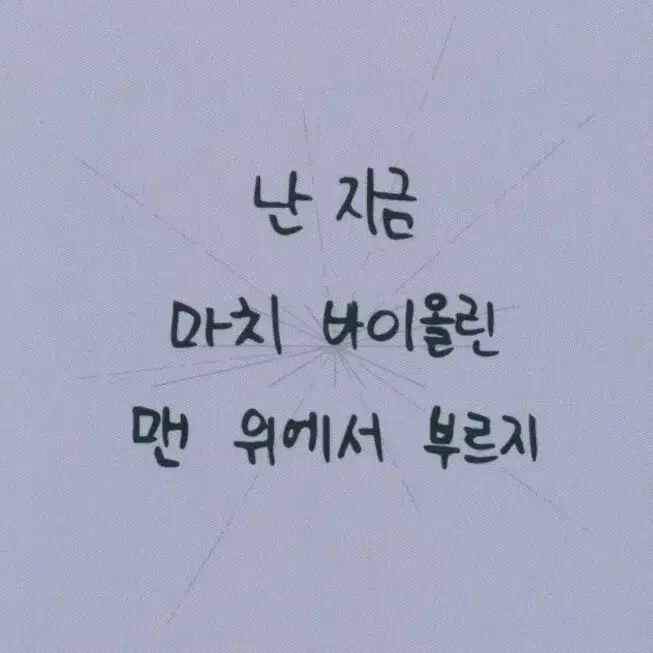 난 지금
마치 바이올린
맨 위에서 부르지